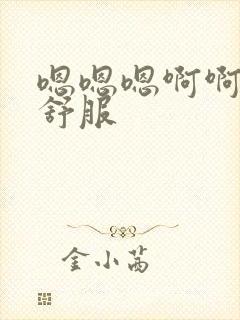 嗯嗯嗯啊啊
舒服
金小茜